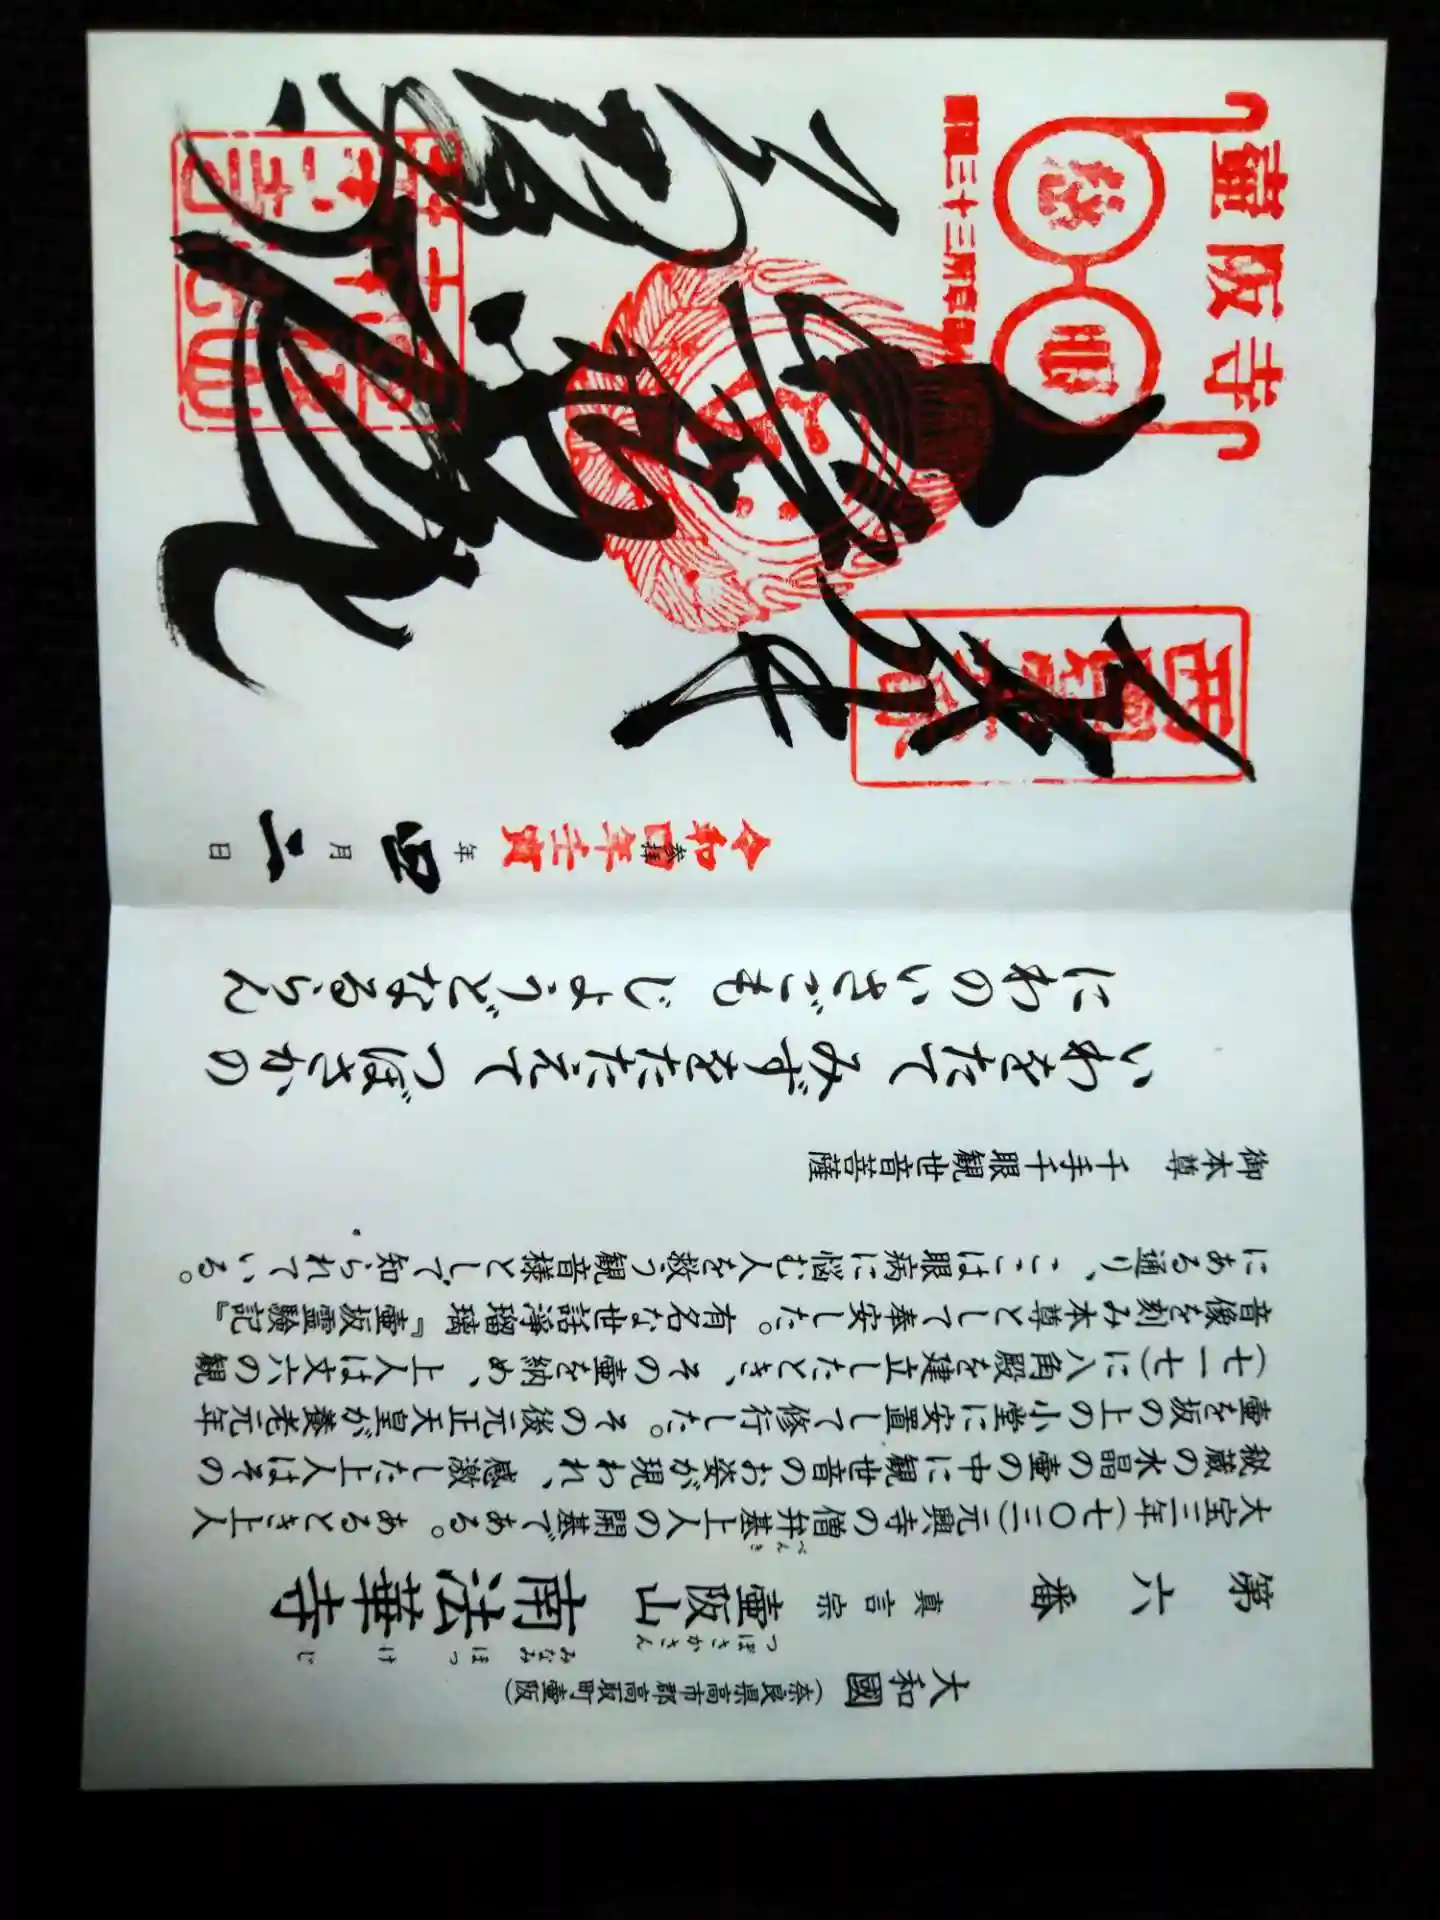 大和國(奈良県高市郡高取町壷阪)
第六番 真言宗 壷阪山 南法華寺
つぼさかさん みなみほっけじ
べんき
大宝三年(七〇三)元興寺の僧弁基上人の開基である。あるとき上人
秘蔵の水晶の壷の中に観世音のお姿が現われ、感激した上人はその
壷を坂の上の小堂に安置して修行した。その後元正天皇が養老元年
(七一七)に八角殿を建立したとき、その壷を納め、上人は丈六の観
音像を刻み本尊として奉安した。有名な世話浄瑠璃『壷坂霊験記』
にある通り、ここは眼病に悩む人を救う観音様として知られている。
御本尊 千手千眼観世音菩薩
いわをたて みずをたたえて つぼさかの
にわのいさごも じょうどなるらん
壷阪寺
西国第六番
奉拝
令和四年壬寅
年四月二日
普照殿